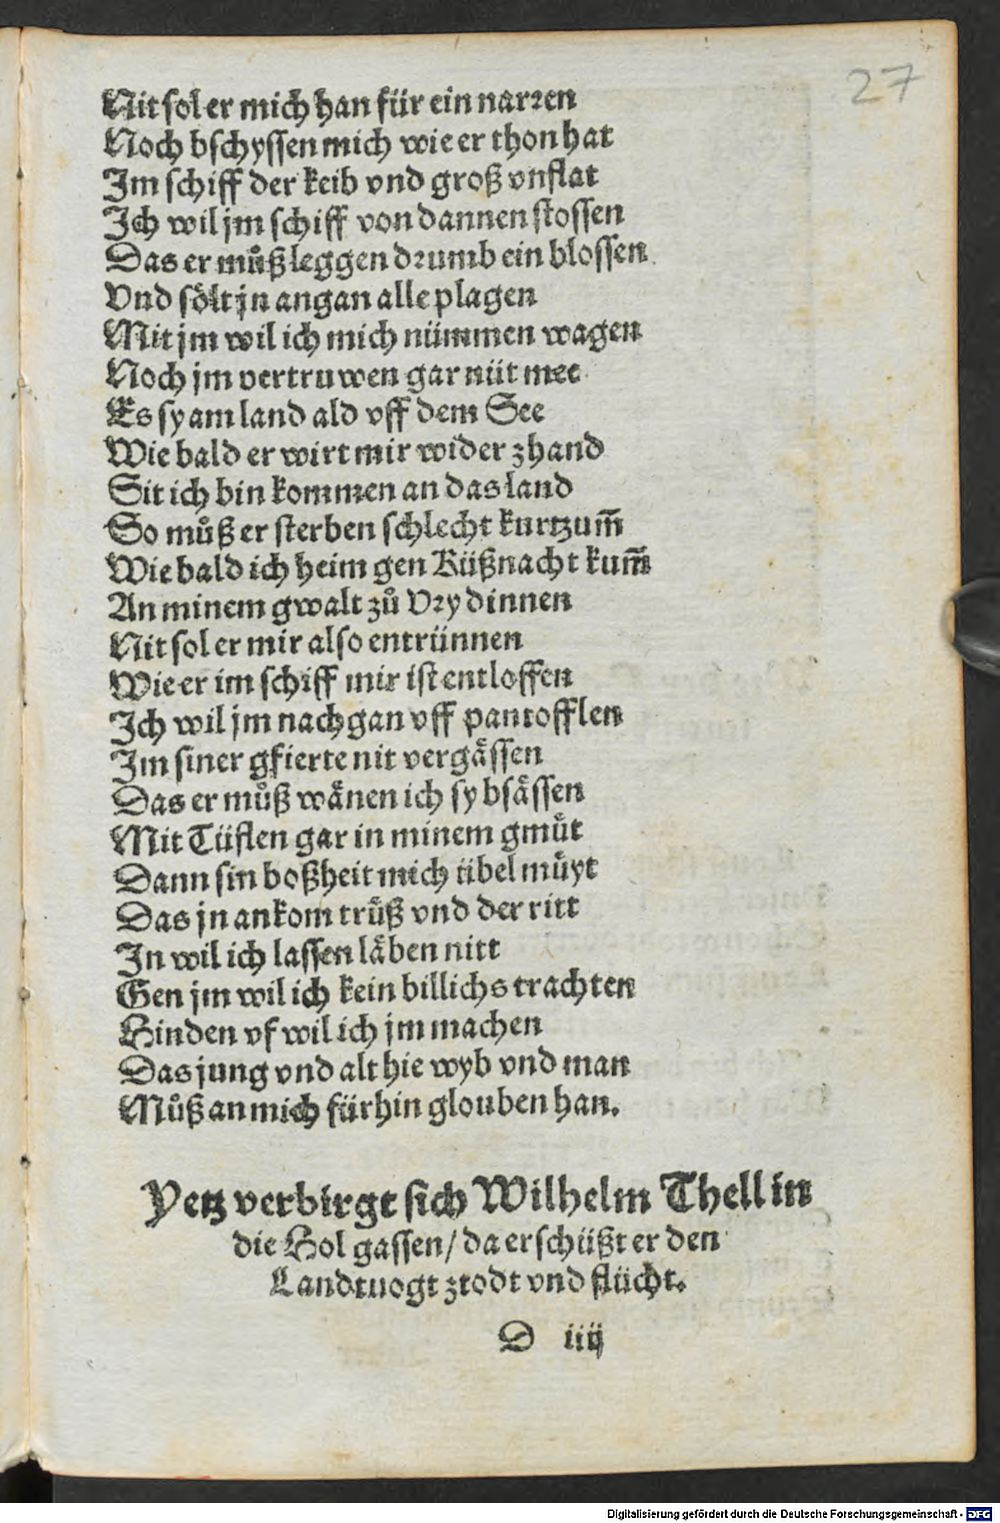 27
Nit sol er mich han für ein narren
Noch bschyssen mich wie er thon hat
Im schiff der keib vnd groß vnflat
Ich wil jm schiff von dannen stossen
Das er můß leggen drumb ein blossen
Vnd sölt jn angan alle plagen
Mit jm wil ich mich nümmen wagen
Noch jm vertruwen gar nüt mee
Es sy am land ald vff dem See
Wie bald er wirt mir wider zhand
Sit ich bin kommen an das land
So můß er sterben schlecht kurtzum̃
Wie bald ich heim gen Küßnacht kum̃
An minem gwalt zů Vry dinnen
Nit sol er mir also entrünnen
Wie er im schiff mir ist entloffen
Ich wil jm nachgan vff pantofflen
Im siner gfierte nit vergässen
Das er můß wänen ich sy bsässen
Mit Tüflen gar in minem gmüt
Dann sin boßheit mich übel müyt
Das jn ankom trüß vnd der ritt
In wil ich lassen läben nitt
Gen jm wil ich kein billichs trachten
Hinden vf wil ich jm machen
Das jung vnd alt hie wyb vnd man
Můß an mich fürhin glouben han.
Yetz verbirgt sich Wilhelm Thell in
die Hol gassen / da erschüßt er den
Landtuogt ztodt vnd flücht.
D iiij
Digitalisierung gefördert durch die Deutsche Forschungsgemeinschaft - DFG